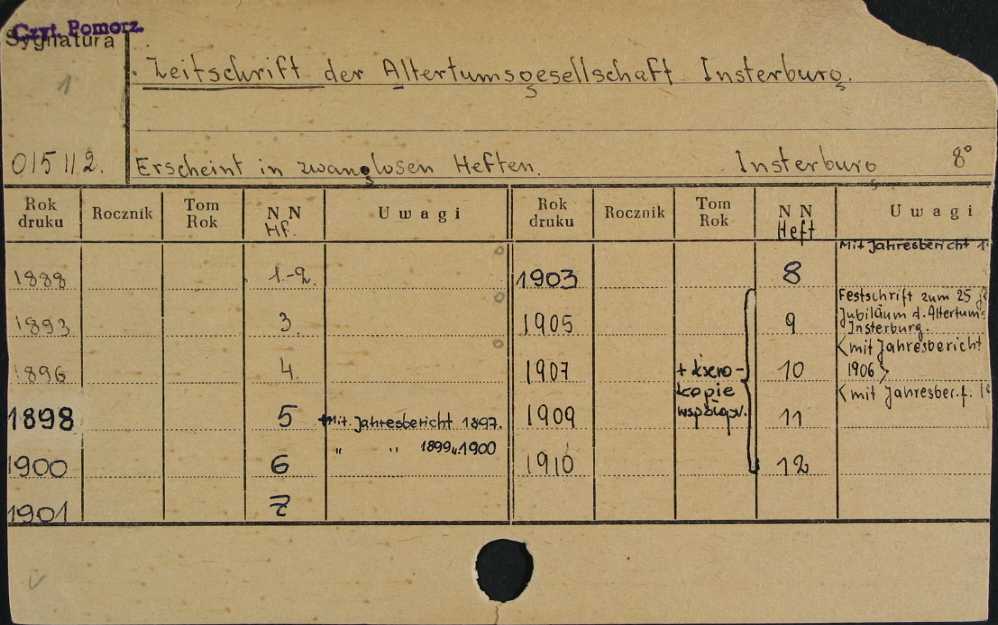 Czyt. Pomorz.
Sygnatura
1
Zeitschrift der Altertumsgesellschaft Insterburg.
015112. Erscheint in zwanglosen Heften. Insterburg 8°
Rok druku Rocznik Tom Rok NN Hf. Uwagi Rok druku Rocznik Tom Rok NN Heft Uwagi
1888 1.-2. 1903 8 Mit Jahresbericht
1893 3. 1905 9 Festschrift zum 25
Jubiläum d. Altertums
Insterburg.
1896 4. 1907 10 <mit Jahresbericht
1906>
+ ksero-
kopie
1898 5 Mit Jahresbericht 1897. 1909 11 <mit Jahresber. f.
1900 6 " " 1899 u. 1900 1910 12
1901 7